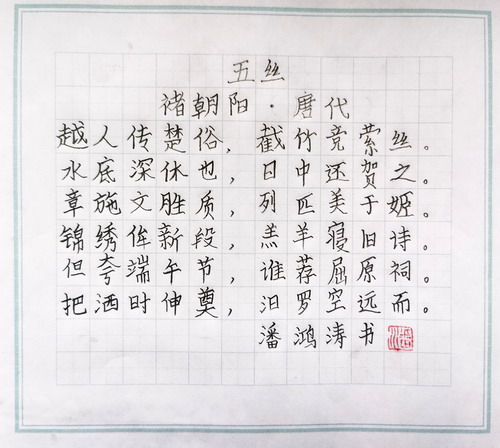 五丝
褚朝阳·唐代
越人传楚俗，截竹竞萦丝。
水底深休也，日中还贺之。
章施文胜质，列匹美于姬。
锦绣侔新段，羔羊寝旧诗。
但夸端午节，谁荐屈原祠。
把酒时伸奠，汨罗空远而。
潘鸿涛书